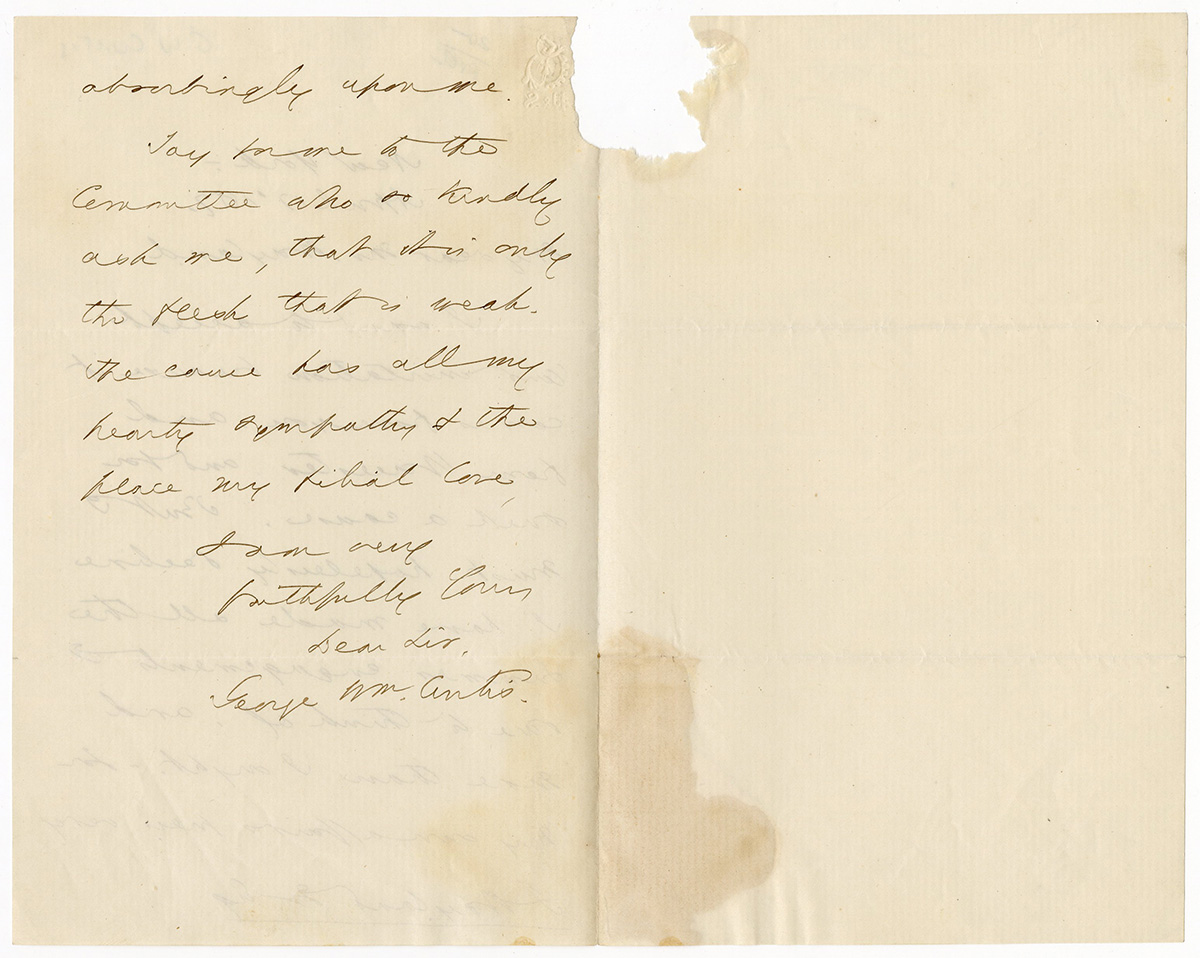 absorbingly upon me.
Say for me to the
Committee who so kindly
ask me, that it is only
the flesh that is weak.
The cause has all my
hearty sympathy & the
place my filial love,
I am very
faithfully Yours
Dear Sir,
George Wm. Curtis.